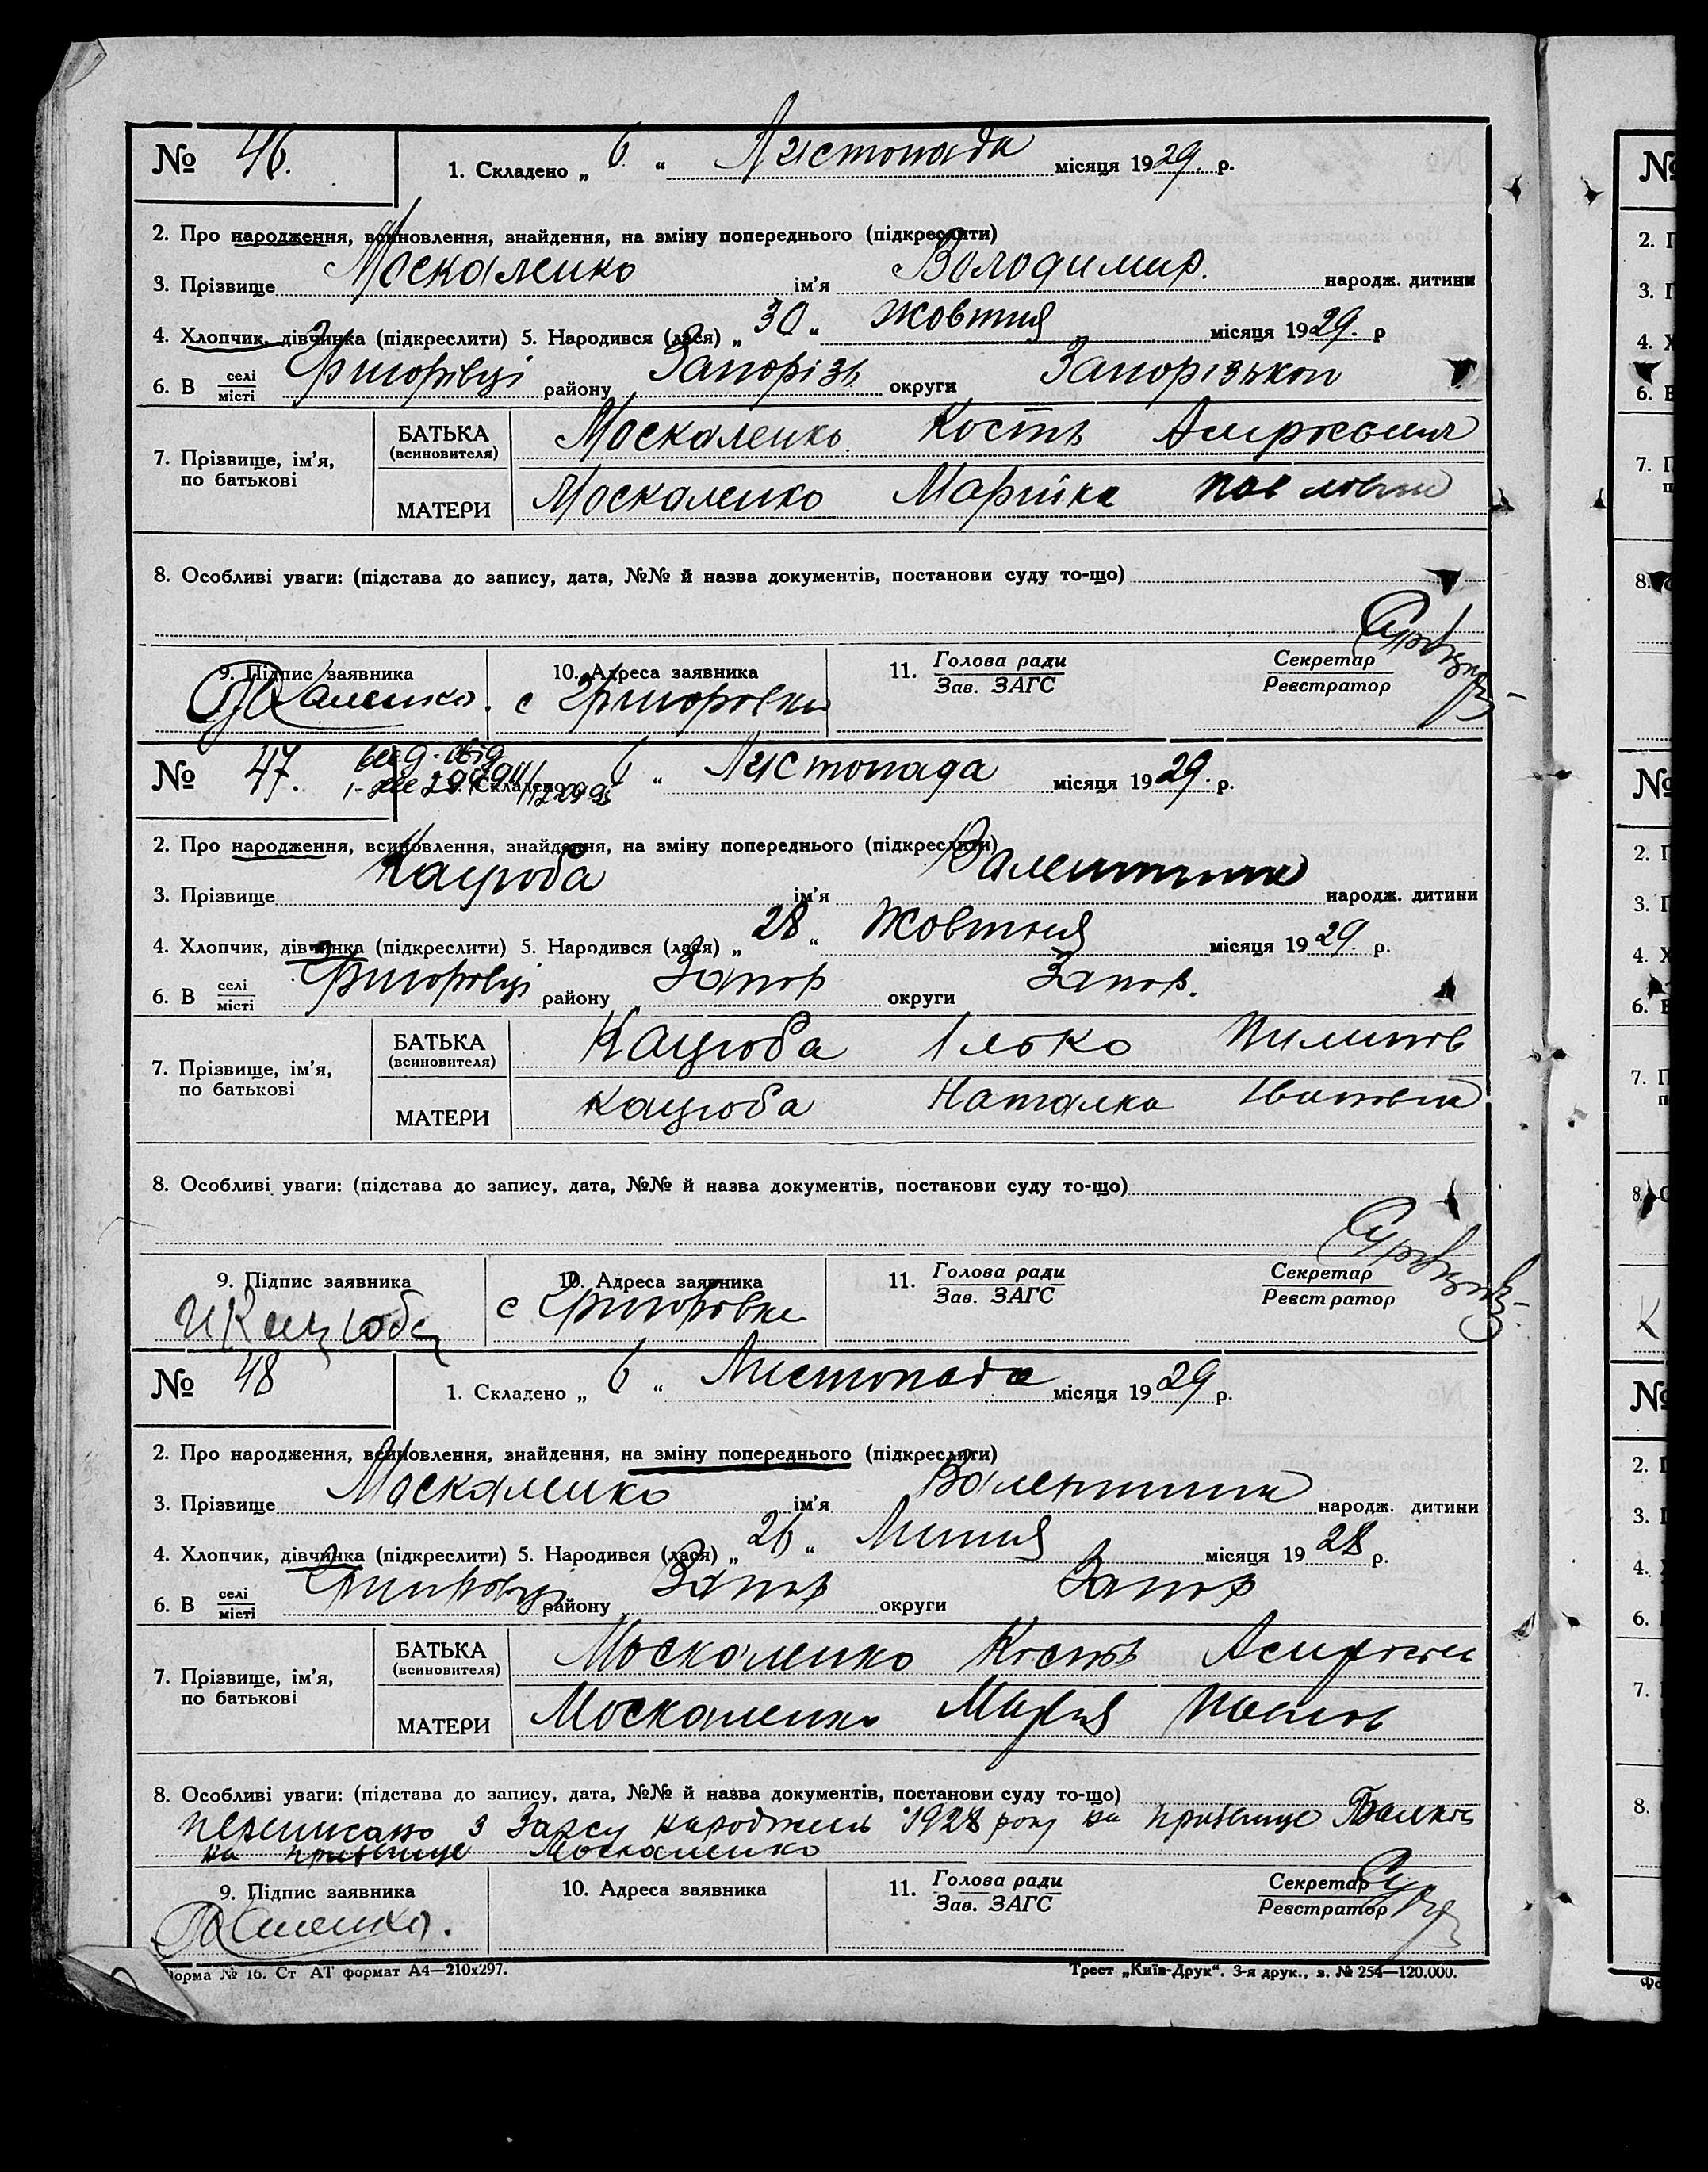 № 46. 1. Складено „ 6 “ Листопада місяця 1929. р.
2. Про народження, всиновлення, знайдення, на зміну попереднього (підкреслити)
3. Прізвище Москаленко ім’я Володимир. народж. дитини
4. Хлопчик, дівчинка (підкреслити) 5. Народився (лася) „ 30 “ жовтня місяця 1929. р
6. В селі/місті Григорівці району Запорізь округи Запорізькои
7. Прізвище, ім’я, по батькові
БАТЬКА (всиновителя) Москаленко Кость
МАТЕРИ Москаленко Марійка Павловна
8. Особливі уваги: (підстава до запису, дата, №№ й назва документів, постанови суду то-що)
9. Підпис заявника 10. Адреса заявника 11. Голова ради / Зав. ЗАГС Секретар / Реєстратор
с Григоровки
№ 47. 1. Складено 6 “ Листопада місяця 1929. р.
2. Про народження, всиновлення, знайдення, на зміну попереднього (підкреслити)
3. Прізвище Кацюба ім’я Валентина народж. дитини
4. Хлопчик, дівчинка (підкреслити) 5. Народився (лася) „ 28 “ жовтня місяця 1929. р.
6. В селі/місті Григоровці району Запор округи Запор.
7. Прізвище, ім’я, по батькові
БАТЬКА (всиновителя) Кацюба Ілько Пилипов
МАТЕРИ Кацюба Наталка Івановна
8. Особливі уваги: (підстава до запису, дата, №№ й назва документів, постанови суду то-що)
9. Підпис заявника 10. Адреса заявника 11. Голова ради / Зав. ЗАГС Секретар / Реєстратор
И Кацюба с Григоровки
№ 48 1. Складено „ 6 “ Листопада місяця 1929 р.
2. Про народження, всиновлення, знайдення, на зміну попереднього (підкреслити)
3. Прізвище Москаленко ім’я Валентина народж. дитини
4. Хлопчик, дівчинка (підкреслити) 5. Народився (лася) „ 26 “ Липня місяця 1928 р.
6. В селі/місті Григоровці району Запор округи Запор
7. Прізвище, ім’я, по батькові
БАТЬКА (всиновителя) Москаленко Кость
МАТЕРИ Москаленко Мария Павлов
8. Особливі уваги: (підстава до запису, дата, №№ й назва документів, постанови суду то-що)
переписано з Загсу народжень 1928 року на прізвище
на прізвище Москаленко
9. Підпис заявника 10. Адреса заявника 11. Голова ради / Зав. ЗАГС Секретар / Реєстратор
Форма № 16. Ст АТ формат А4—210х297. Трест „Київ-Друк“. 3-я друк., з. № 254—120.000.